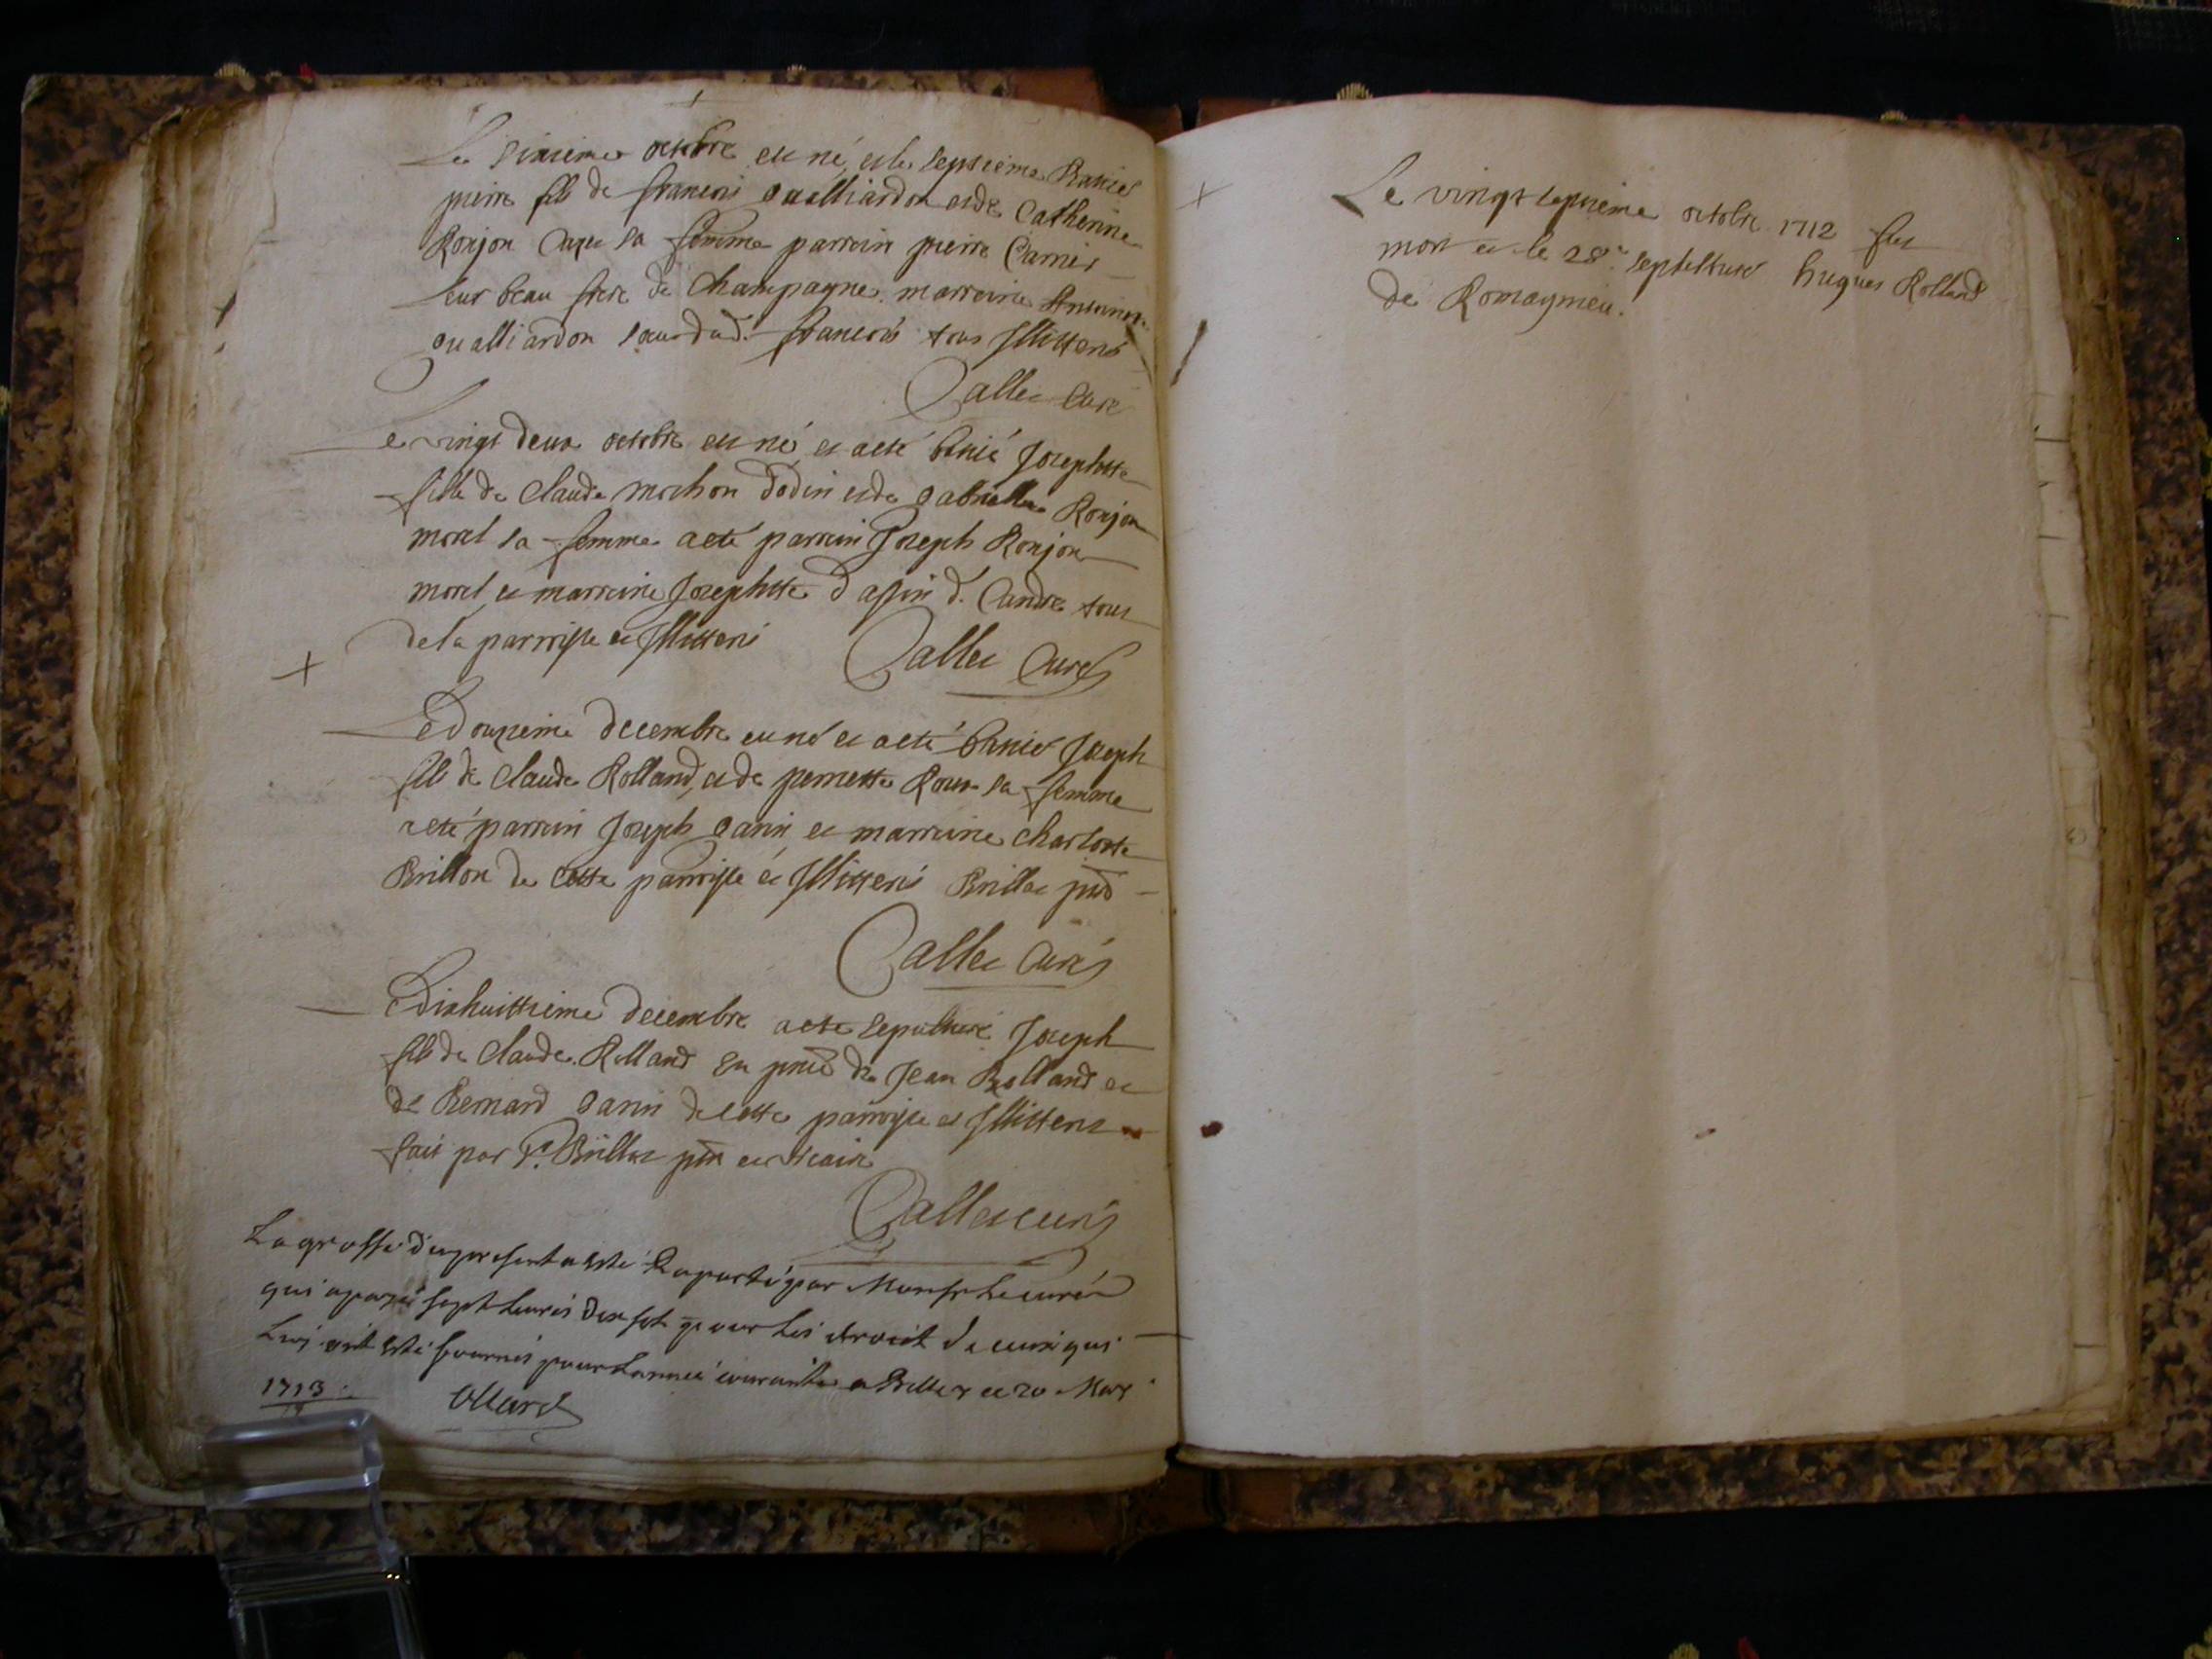 Le sixieme octobre est né, et le septieme Batisé
pierre fils de francois Gualliardon et de Catherine
Ronjon sa femme parrain pierre
leur beau frere de Champagne. marraine
Gualliardon soeur dud. francois tous Illitterés
Callec Curé
Le vingt deux octobre est né et a eté batisé Josephtte
fille de Claude mochon Dodin et de gabrielle Ronjon
morel sa femme a eté parrain Joseph Ronjon
morel et marraine Josephtte d. tous
de la parroisse et Illitterés
Callec Curé
Le douzieme decembre est né et a eté batisé Joseph
fils de Claude Rolland, et de pernette Roux sa femme
a eté parrain Joseph Ganin et marraine charlotte
Brillon de cette parroisse et Illitterés pnt
Callec Curé
Le dixhuittieme decembre a eté sepulturé Joseph
fils de Claude Rolland en pnce de Jean Rolland et
de Bernard Ganin de cette parroisse et Illitterés
fait par Sr. ptre et vicaire
Callec curé
La grosse du present a esté Raporté par Monsr le curé
qui a payé sept livres dix sols pour les droit de
Luy ont esté fournis pour L'année courante a Belley ce 20 Mars
1713
+
+
Le vingt septieme octobre 1712 fut
mort et le 28e. septulturé hugues Rolland
de Romagnieu.